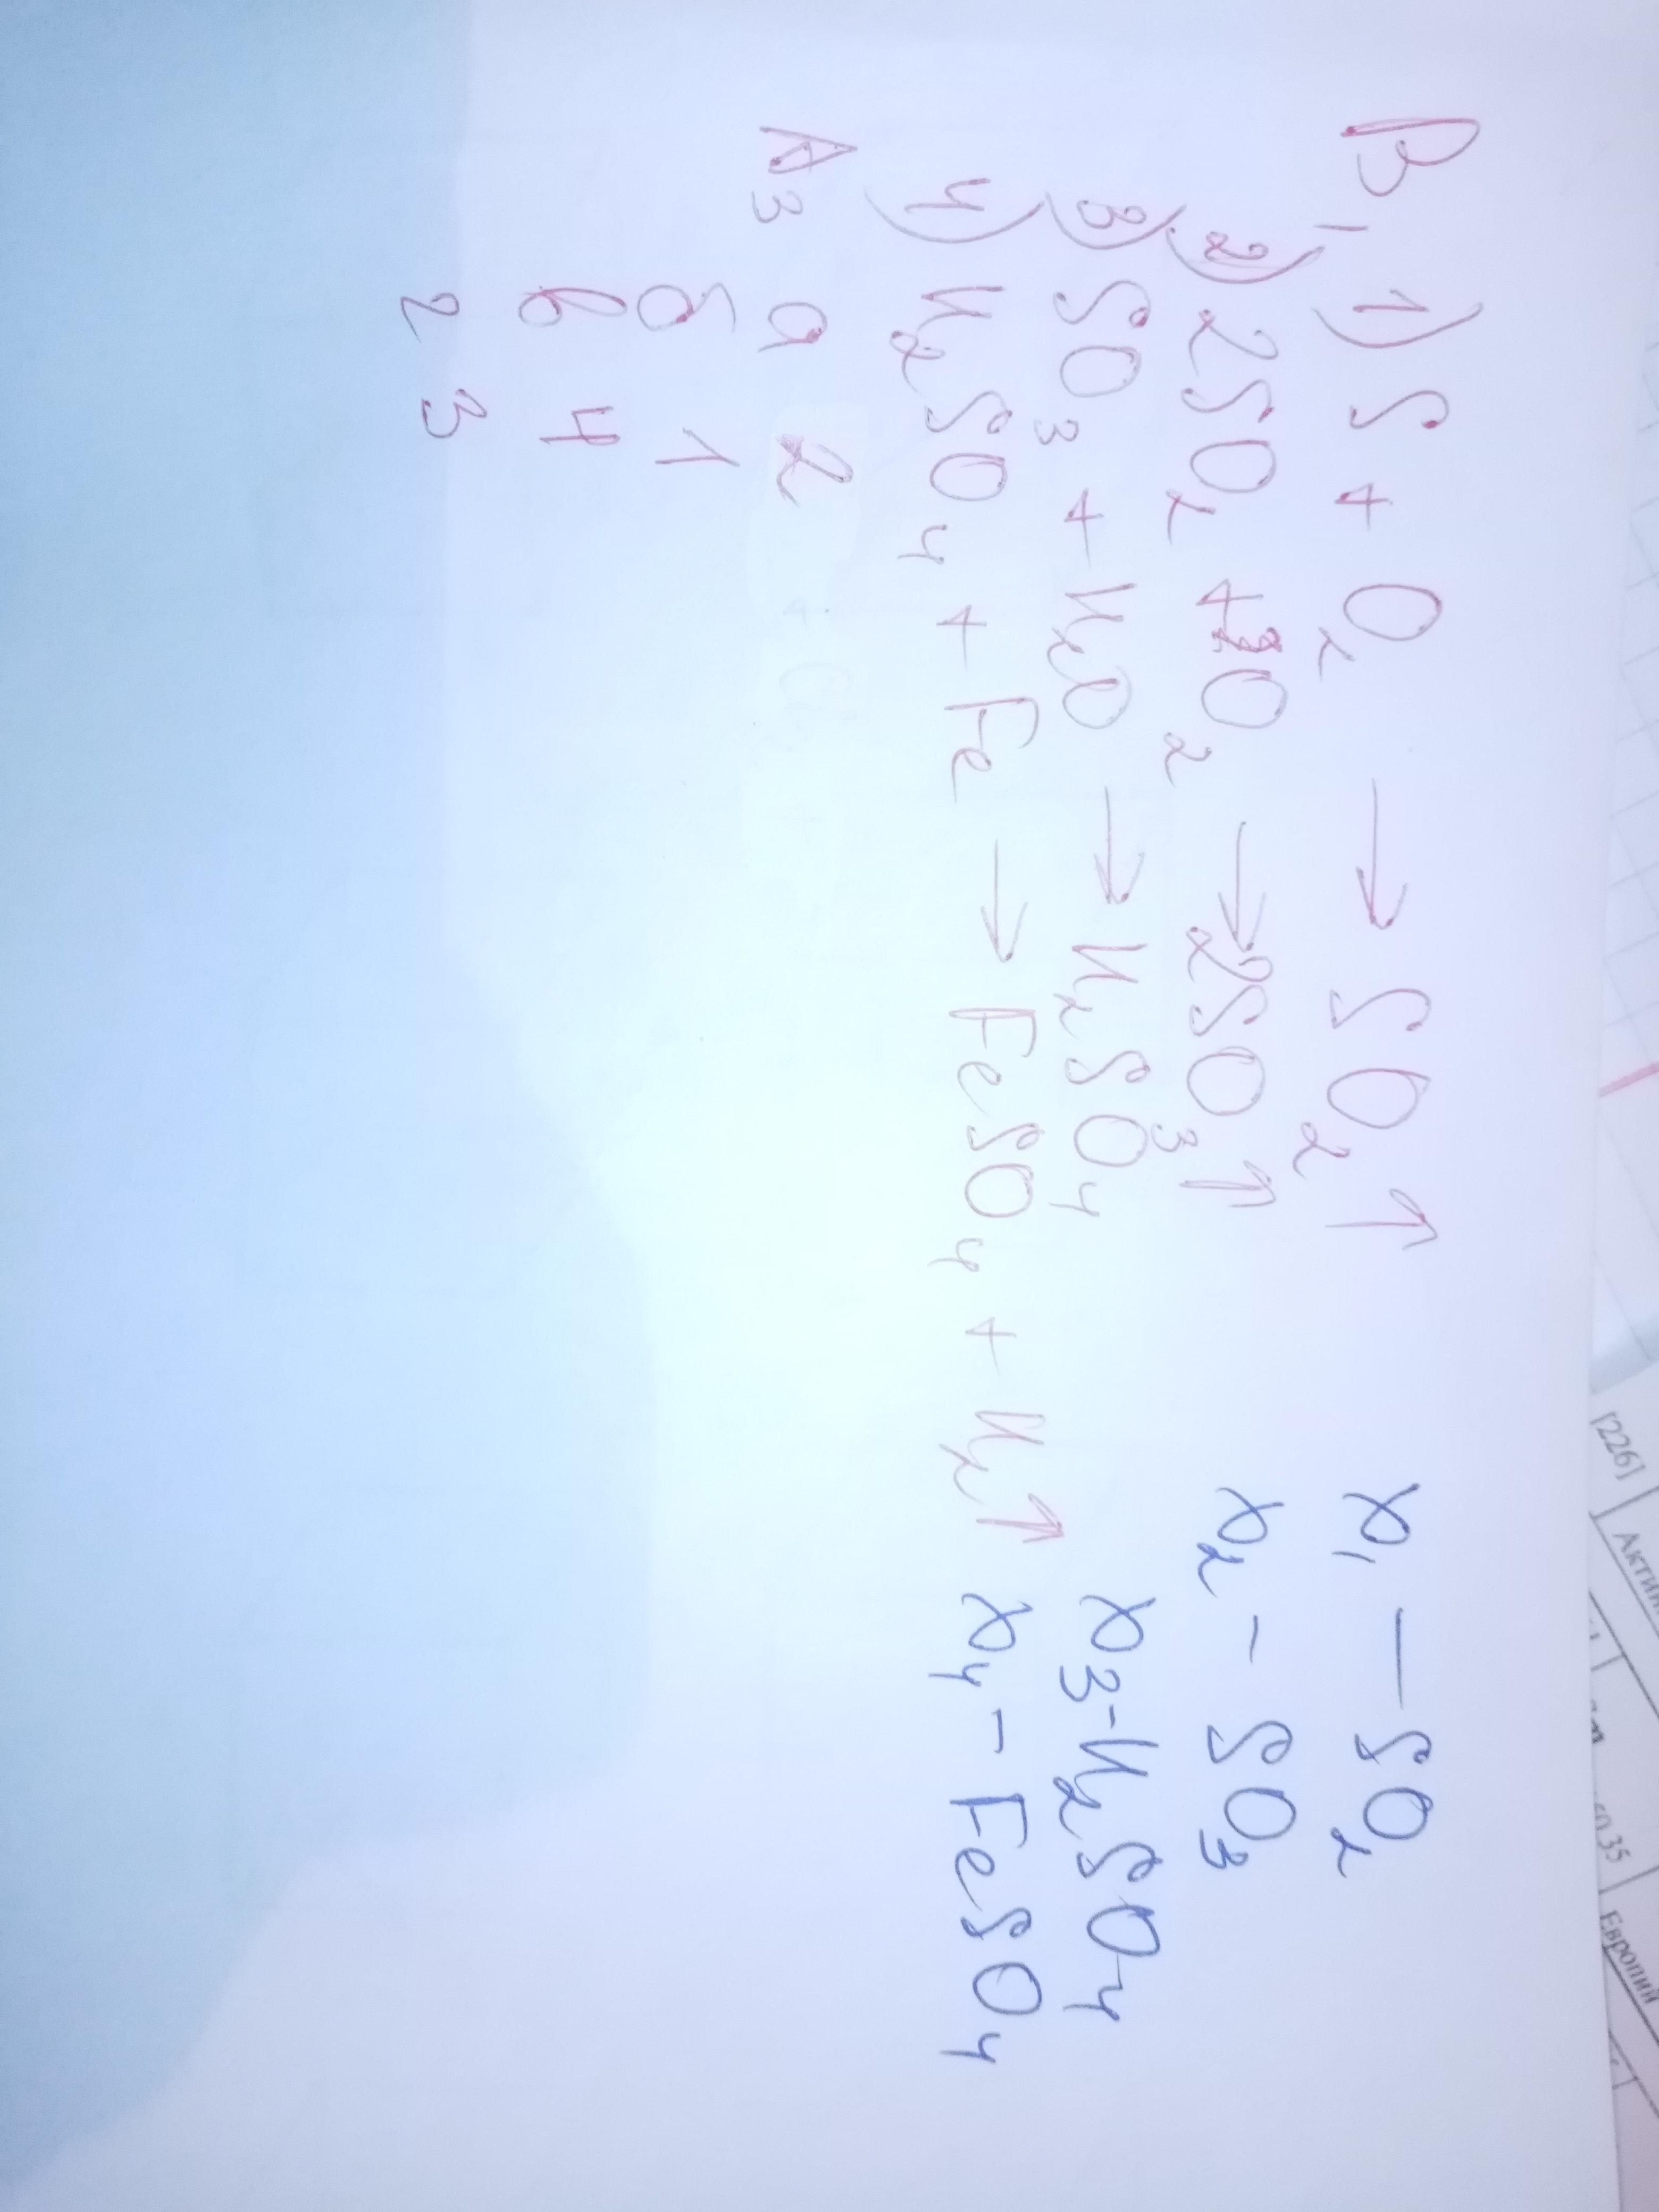 В₁ 1) S + O₂ → SO₂↑ x₁ — SO₂
2) 2SO₂ + O₂ → 2SO₃↑ x₂ – SO₃
3) SO₃ + H₂O → H₂SO₄ x₃ - H₂SO₄
4) H₂SO₄ + Fe → FeSO₄ + H₂↑ x₄ – FeSO₄
А3 а 2
б 1
в 4
г 3
[226]
Актин
Европий